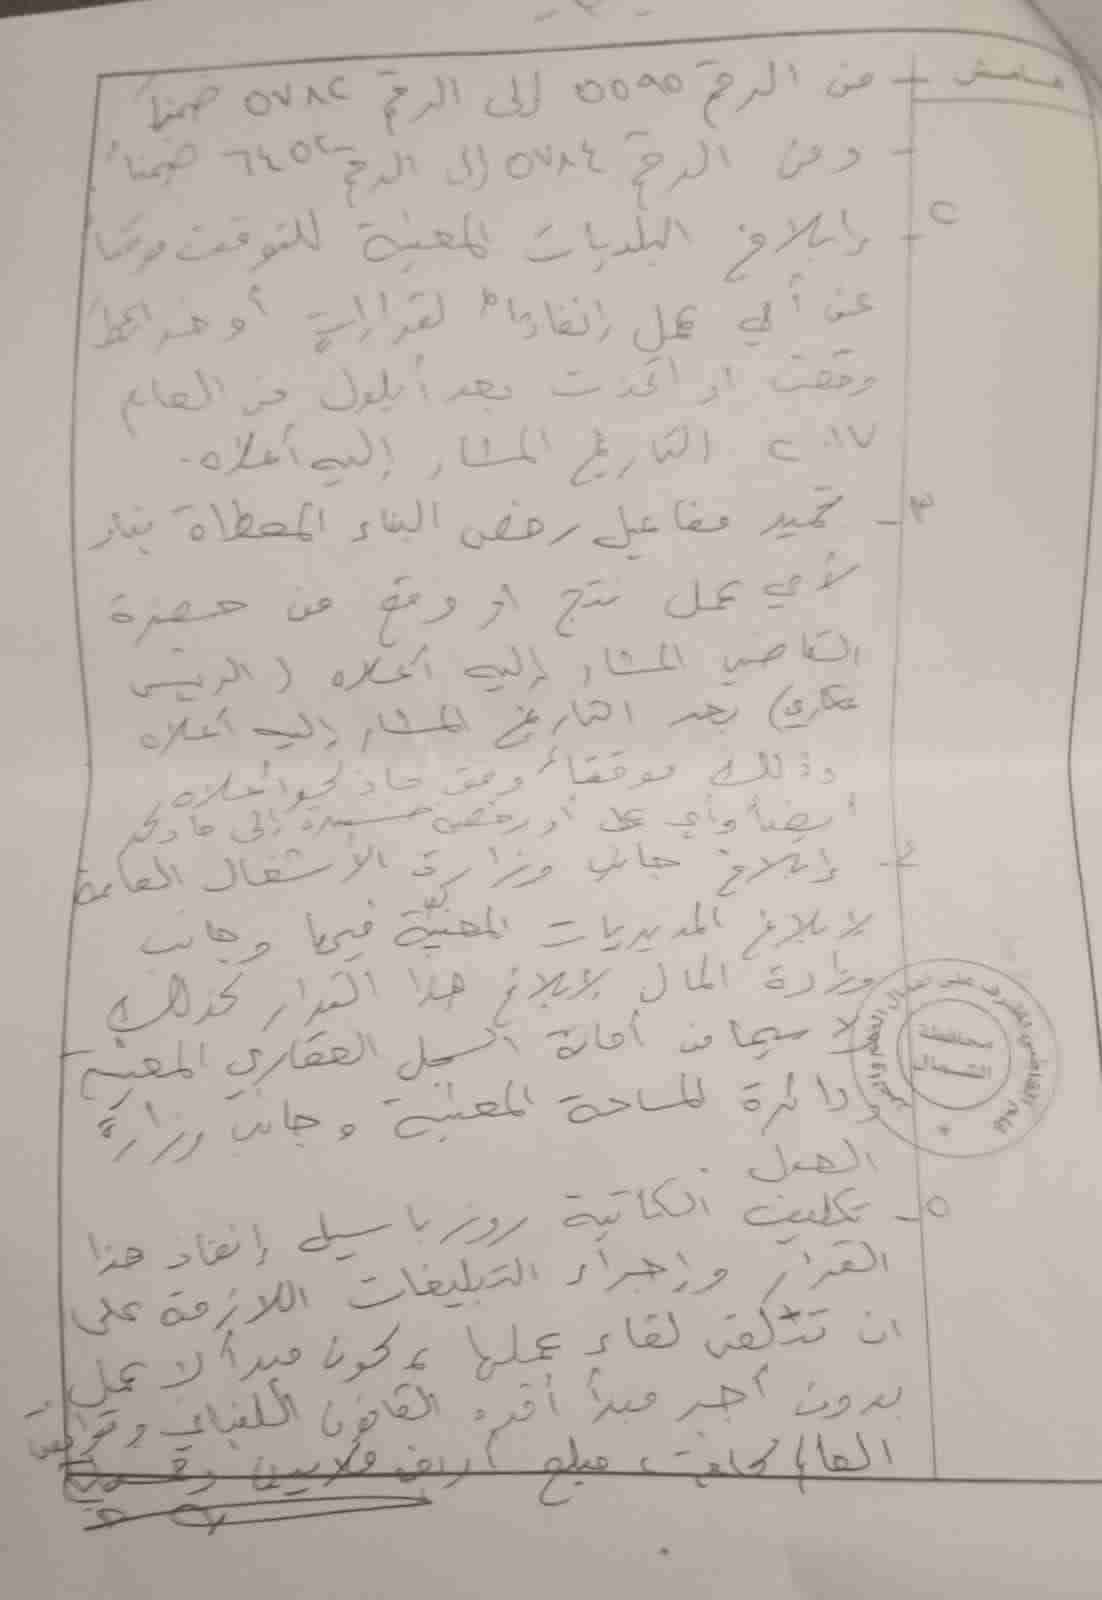 - ٣ -
هامش - من الرقم ٥٥٩٥ إلى الرقم ٥٧٨٢ ضمناً
- ومن الرقم ٥٧٨٤ إلى الرقم ٦٤٥٢ ضمناً
٢ - إبلاغ البلديات المعنية للتوقف
عن أي عمل إنفاذاً لقرارات أو
وقعت او اتخذت بعد أيلول من العام
٢٠١٧ التاريخ المشار إليه أعلاه.
٣ - تجميد مفاعيل رخص البناء المعطاة
لأي عمل نتج او وقع من حضرة
القاضي المشار إليه أعلاه (الرئيس
عكاري) بعد التاريخ المشار إليه أعلاه
وذلك موقتاً وفق أعلاه
أيضاً وأي أو رخص إلى
٤ - إبلاغ جانب وزارة الأشغال العامة
لإبلاغ المديريات المعنية فيها وجانب
وزارة المال لإبلاغ هذا القرار كذلك
لا سيما من أمانة السجل العقاري المعنية
ودائرة المساحة المعنية وجانب وزارة
العدل.
٥ - تكليف الكاتبة روز باسيل إنفاذ هذا
القرار وإجراء التبليغات اللازمة على
ان لقاء عملها كون مبدأ لا عمل
بدون أجر مبدأ أقره القانون اللبناني
مبلغ ملايين